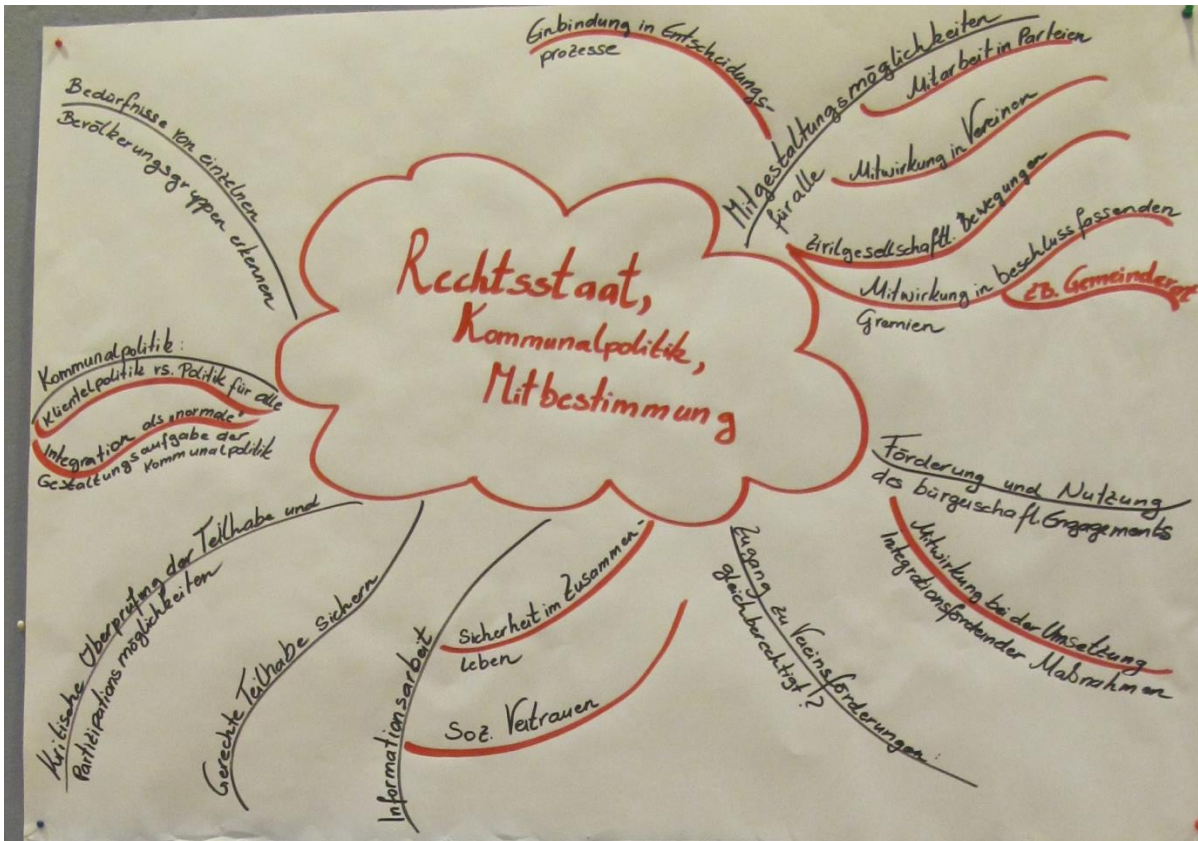 Rechtsstaat,
Kommunalpolitik,
Mitbestimmung
Einbindung in Entscheidungs-
prozesse
Mitgestaltungsmöglichkeiten
für alle
Mitarbeit in Parteien
Mitwirkung in Vereinen
Zivilgesellschaftl. Bewegungen
Mitwirkung in beschlussfassenden
Gremien
z.B. Gemeinderat
Förderung und Nutzung
des bürgerschaftl. Engagements
Mitwirkung bei der Umsetzung
Integrationsfördernder Maßnahmen
Zugang zu Vereinsförderungen:
gleichberechtigt?
Informationsarbeit
Sicherheit im Zusammen-
leben
Soz. Vertrauen
Gerechte Teilhabe sichern
Kritische Überprüfung der Teilhabe und
Partizipationsmöglichkeiten
Kommunalpolitik:
Klientelpolitik vs. Politik für alle
Integration als „normale"
Gestaltungsaufgabe der
Kommunalpolitik
Bedürfnisse von einzelnen
Bevölkerungsgruppen erkennen